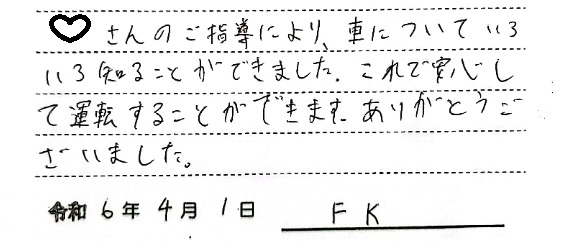 ♡さんのご指導により、車についていろ
いろ知ることができました。これで安心し
て運転することができます。ありがとうご
ざいました。
令和6年4月1日 FK